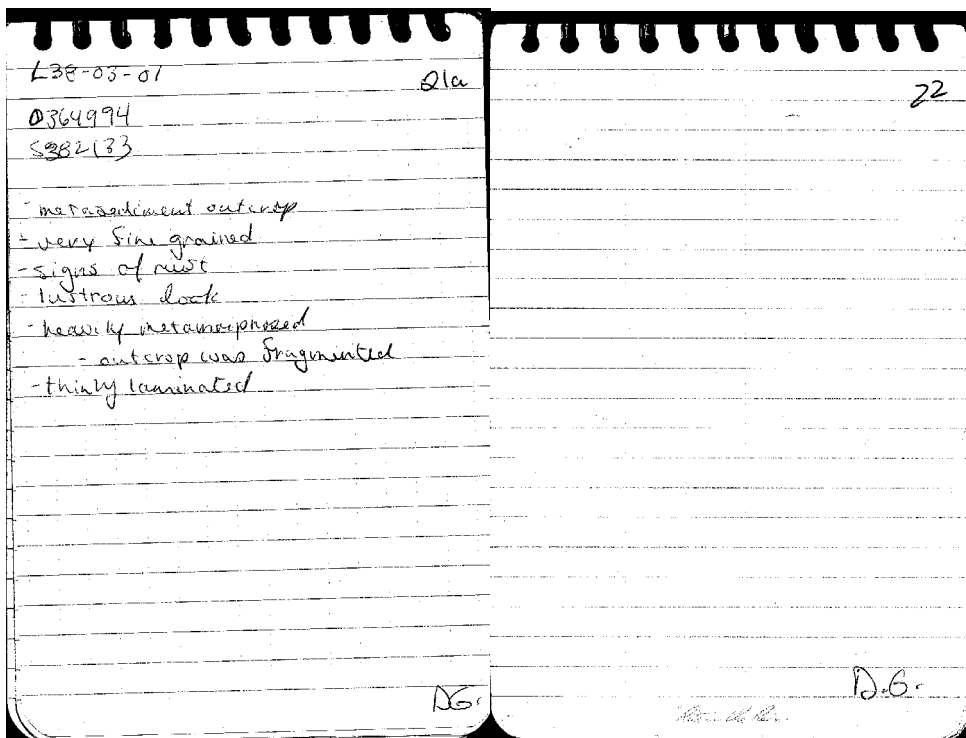 L38-03-01
21a
0364994
5382133
- metasediment outcrop
- very fine grained
- signs of rust
- lustrous look
- heavily metamorphosed
- outcrop was fragmented
- thinly laminated
DG.
22
D.G.